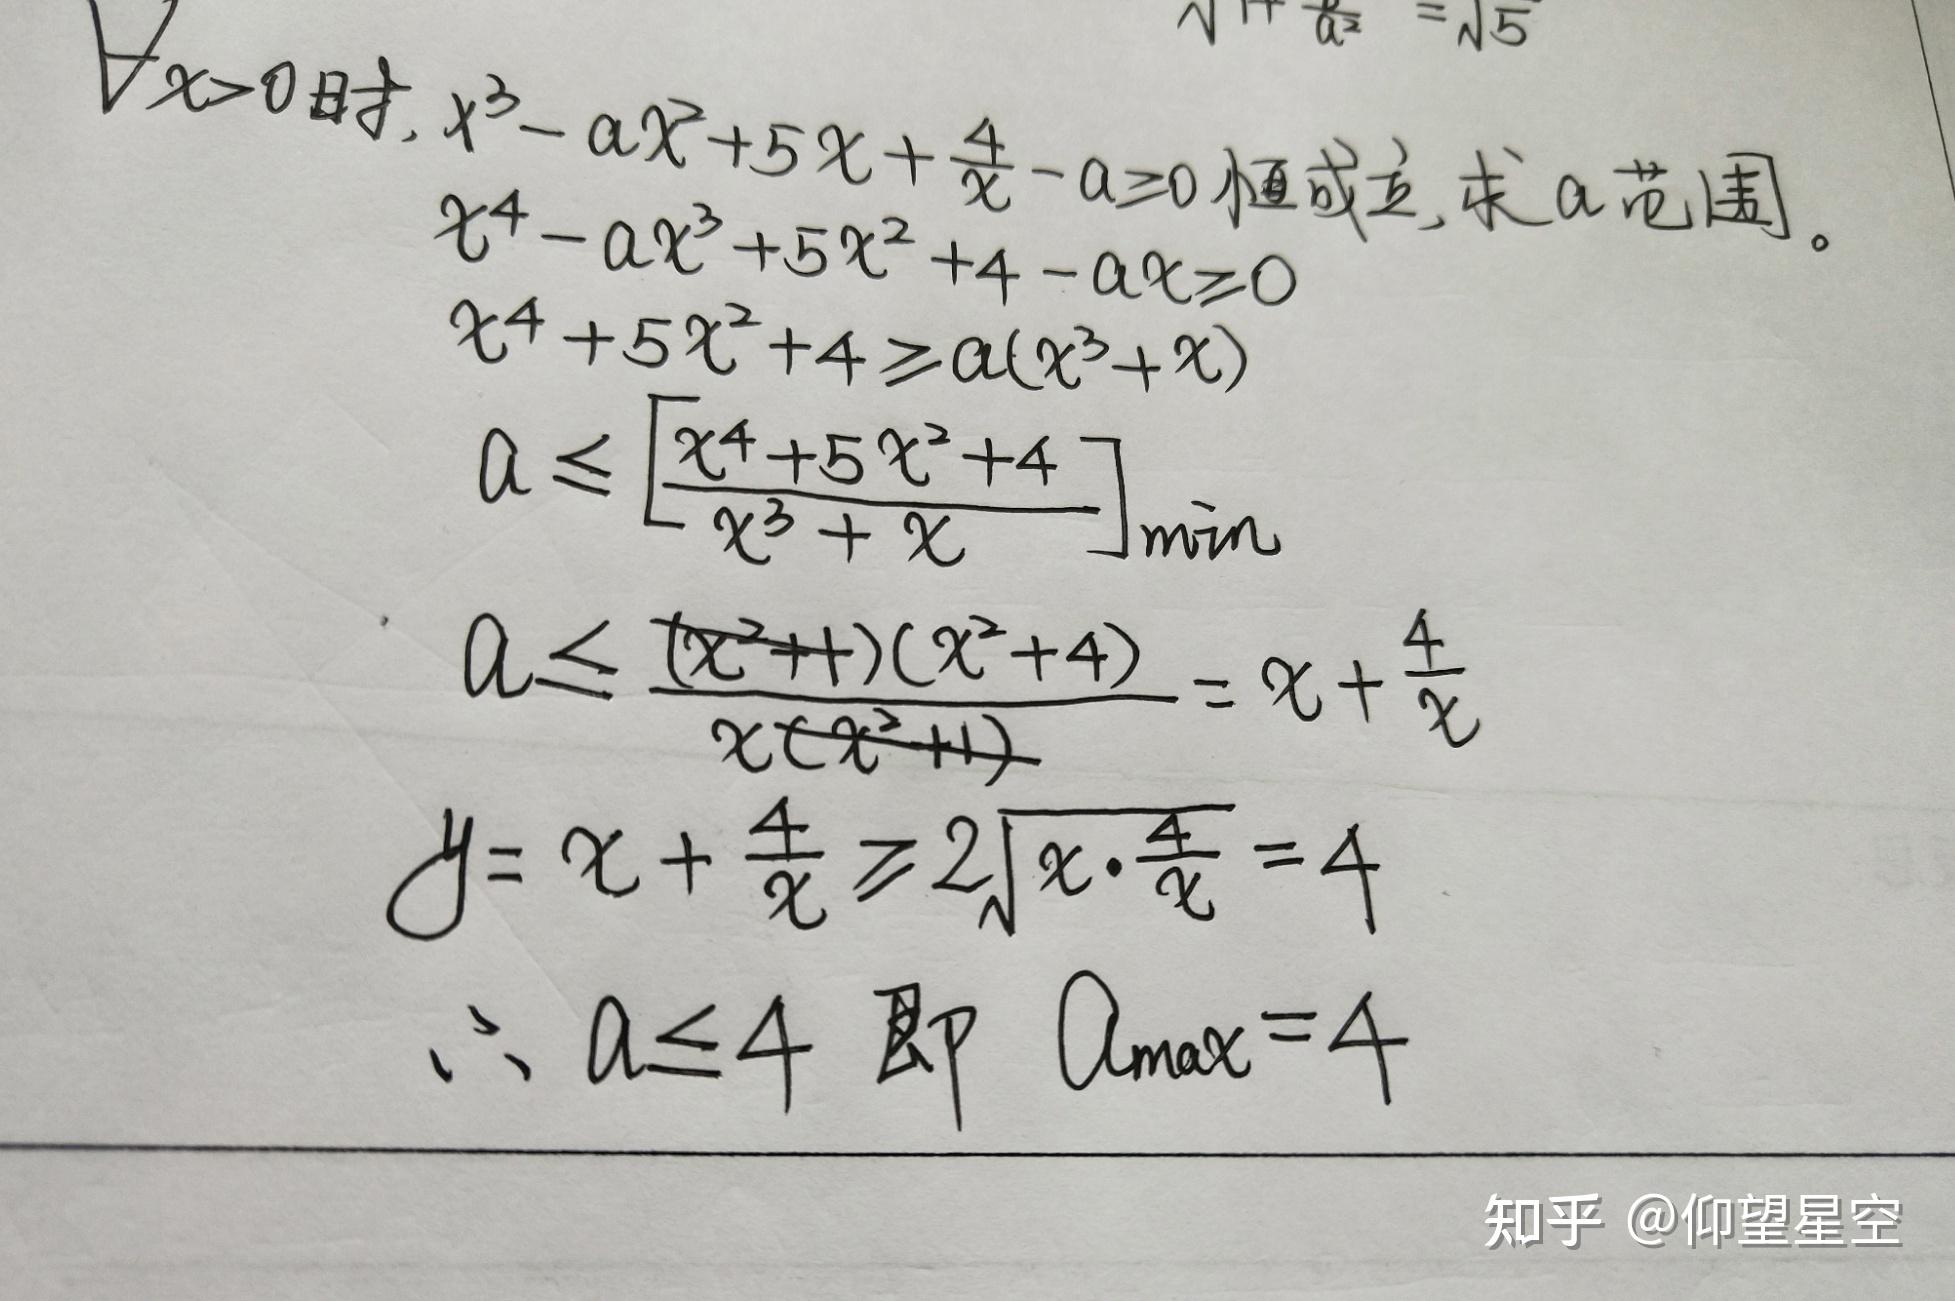 √1+b/a² =√5
∀x>0时,x³-ax²+5x+4/x-a≥0恒成立,求a范围。
x⁴-ax³+5x²+4-ax≥0
x⁴+5x²+4≥a(x³+x)
a≤[(x⁴+5x²+4)/(x³+x)]min
a≤(x²+1)(x²+4)/x(x²+1)=x+4/x
y=x+4/x≥2√x·4/x=4
∴a≤4 即 amax=4
知乎 @仰望星空